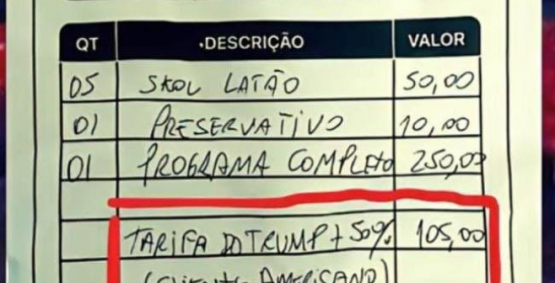 QT ·DESCRIÇÃO VALOR
05 SKOL LATÃO 50,00
01 PRESERVATIVO 10,00
01 PROGRAMA COMPLETO 250,00
TARIFA DO TRUMP + 50% 105,00
(CLIENTE AMERICANO)